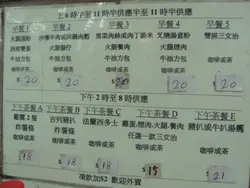 上6時半至11時半供應半至11時半供應
早餐1 早餐2 早餐3 早餐4 早餐5
火腿通粉 雪菜肉絲或肉丁湯米 叉燒湯意粉 雙拼三文治
煎雙蛋 火腿腸仔 火腿餐肉 火腿煎蛋
牛油方包 牛油方包 牛油方包 牛油方包
咖啡或茶 咖啡或茶 咖啡或茶 咖啡或茶 咖啡或茶
20 20 20 20 20
下午2時至8時供應
下午茶餐A 下午茶餐B 下午茶餐C 下午茶餐D 下午茶餐E
雞翼2隻 吉列豬扒 法蘭西多士 蛋,煙肉,火腿,餐肉 豬扒或牛扒湯麵
炸薯條 炸薯條 任選一款三文治
咖啡或茶 咖啡或茶 咖啡或茶 咖啡或茶 咖啡或茶
$18 $18 $15 $21
凍飲加$2 歡迎外賣